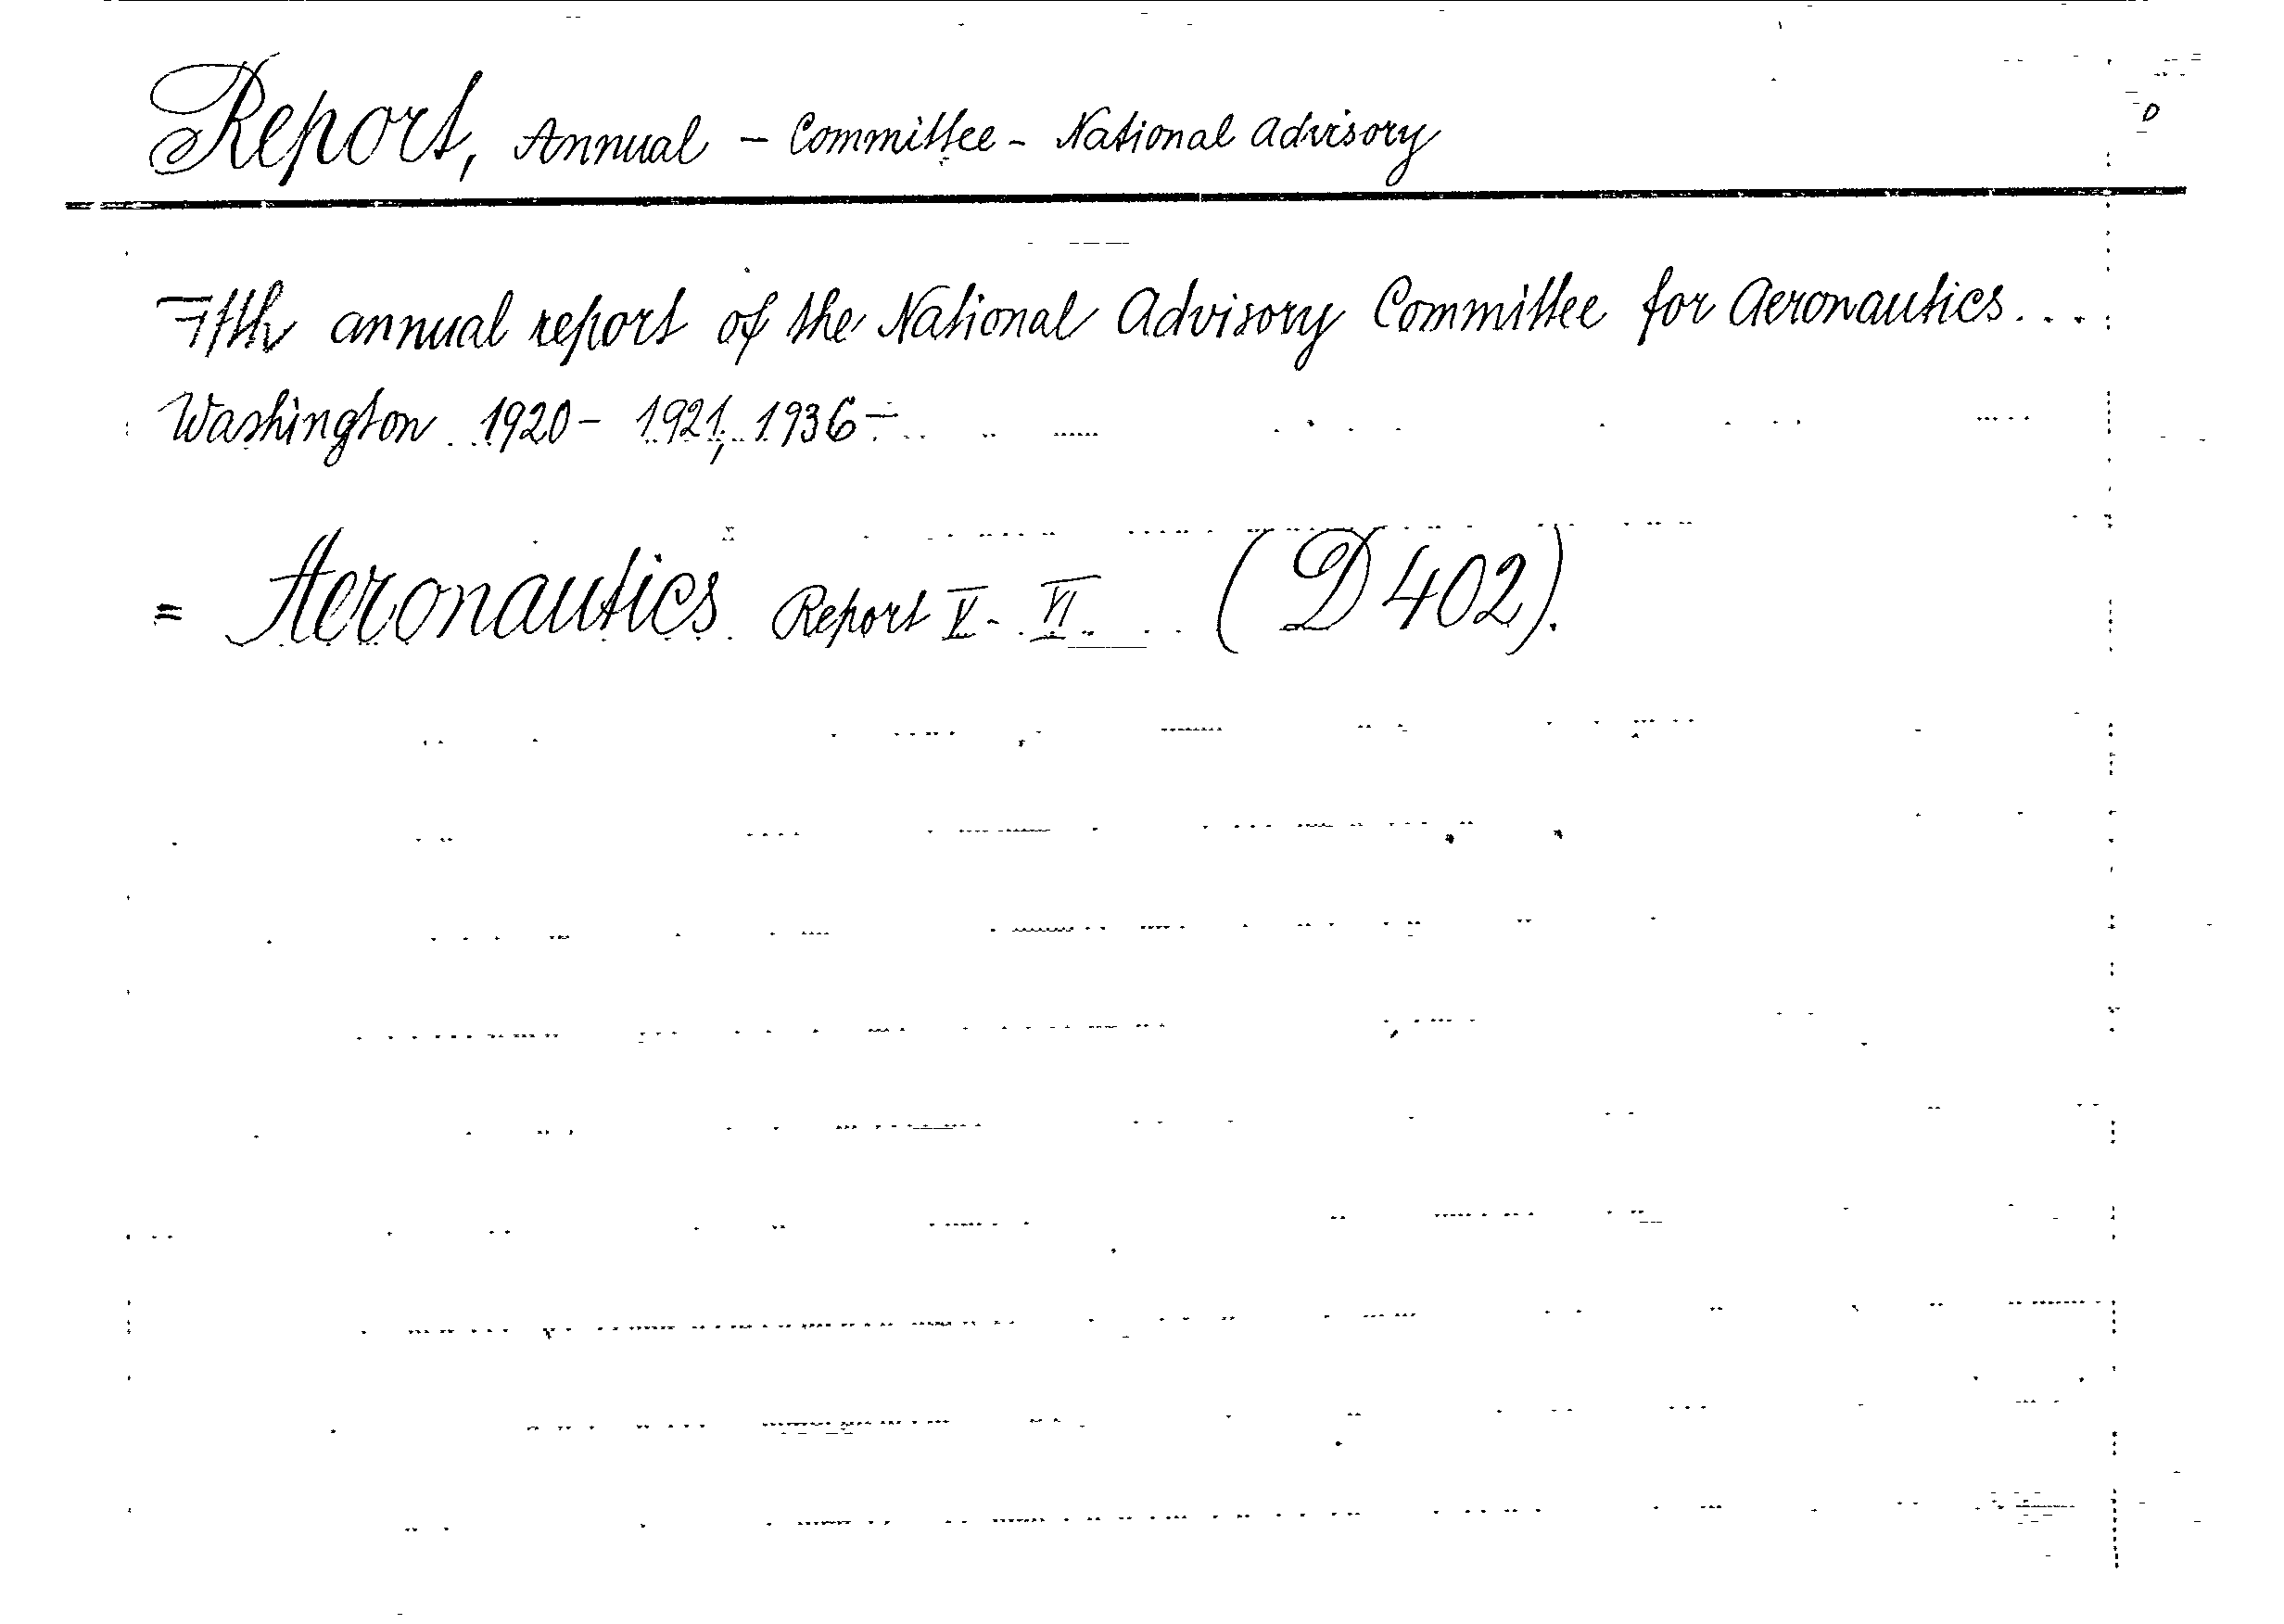 Report, Annual - Committee - National Advisory
Fifth annual report of the National Advisory Committee for Aeronautics....
Washington 1920 - 1921, 1936 ÷
= Aeronautics. Report V - VI (D 402).